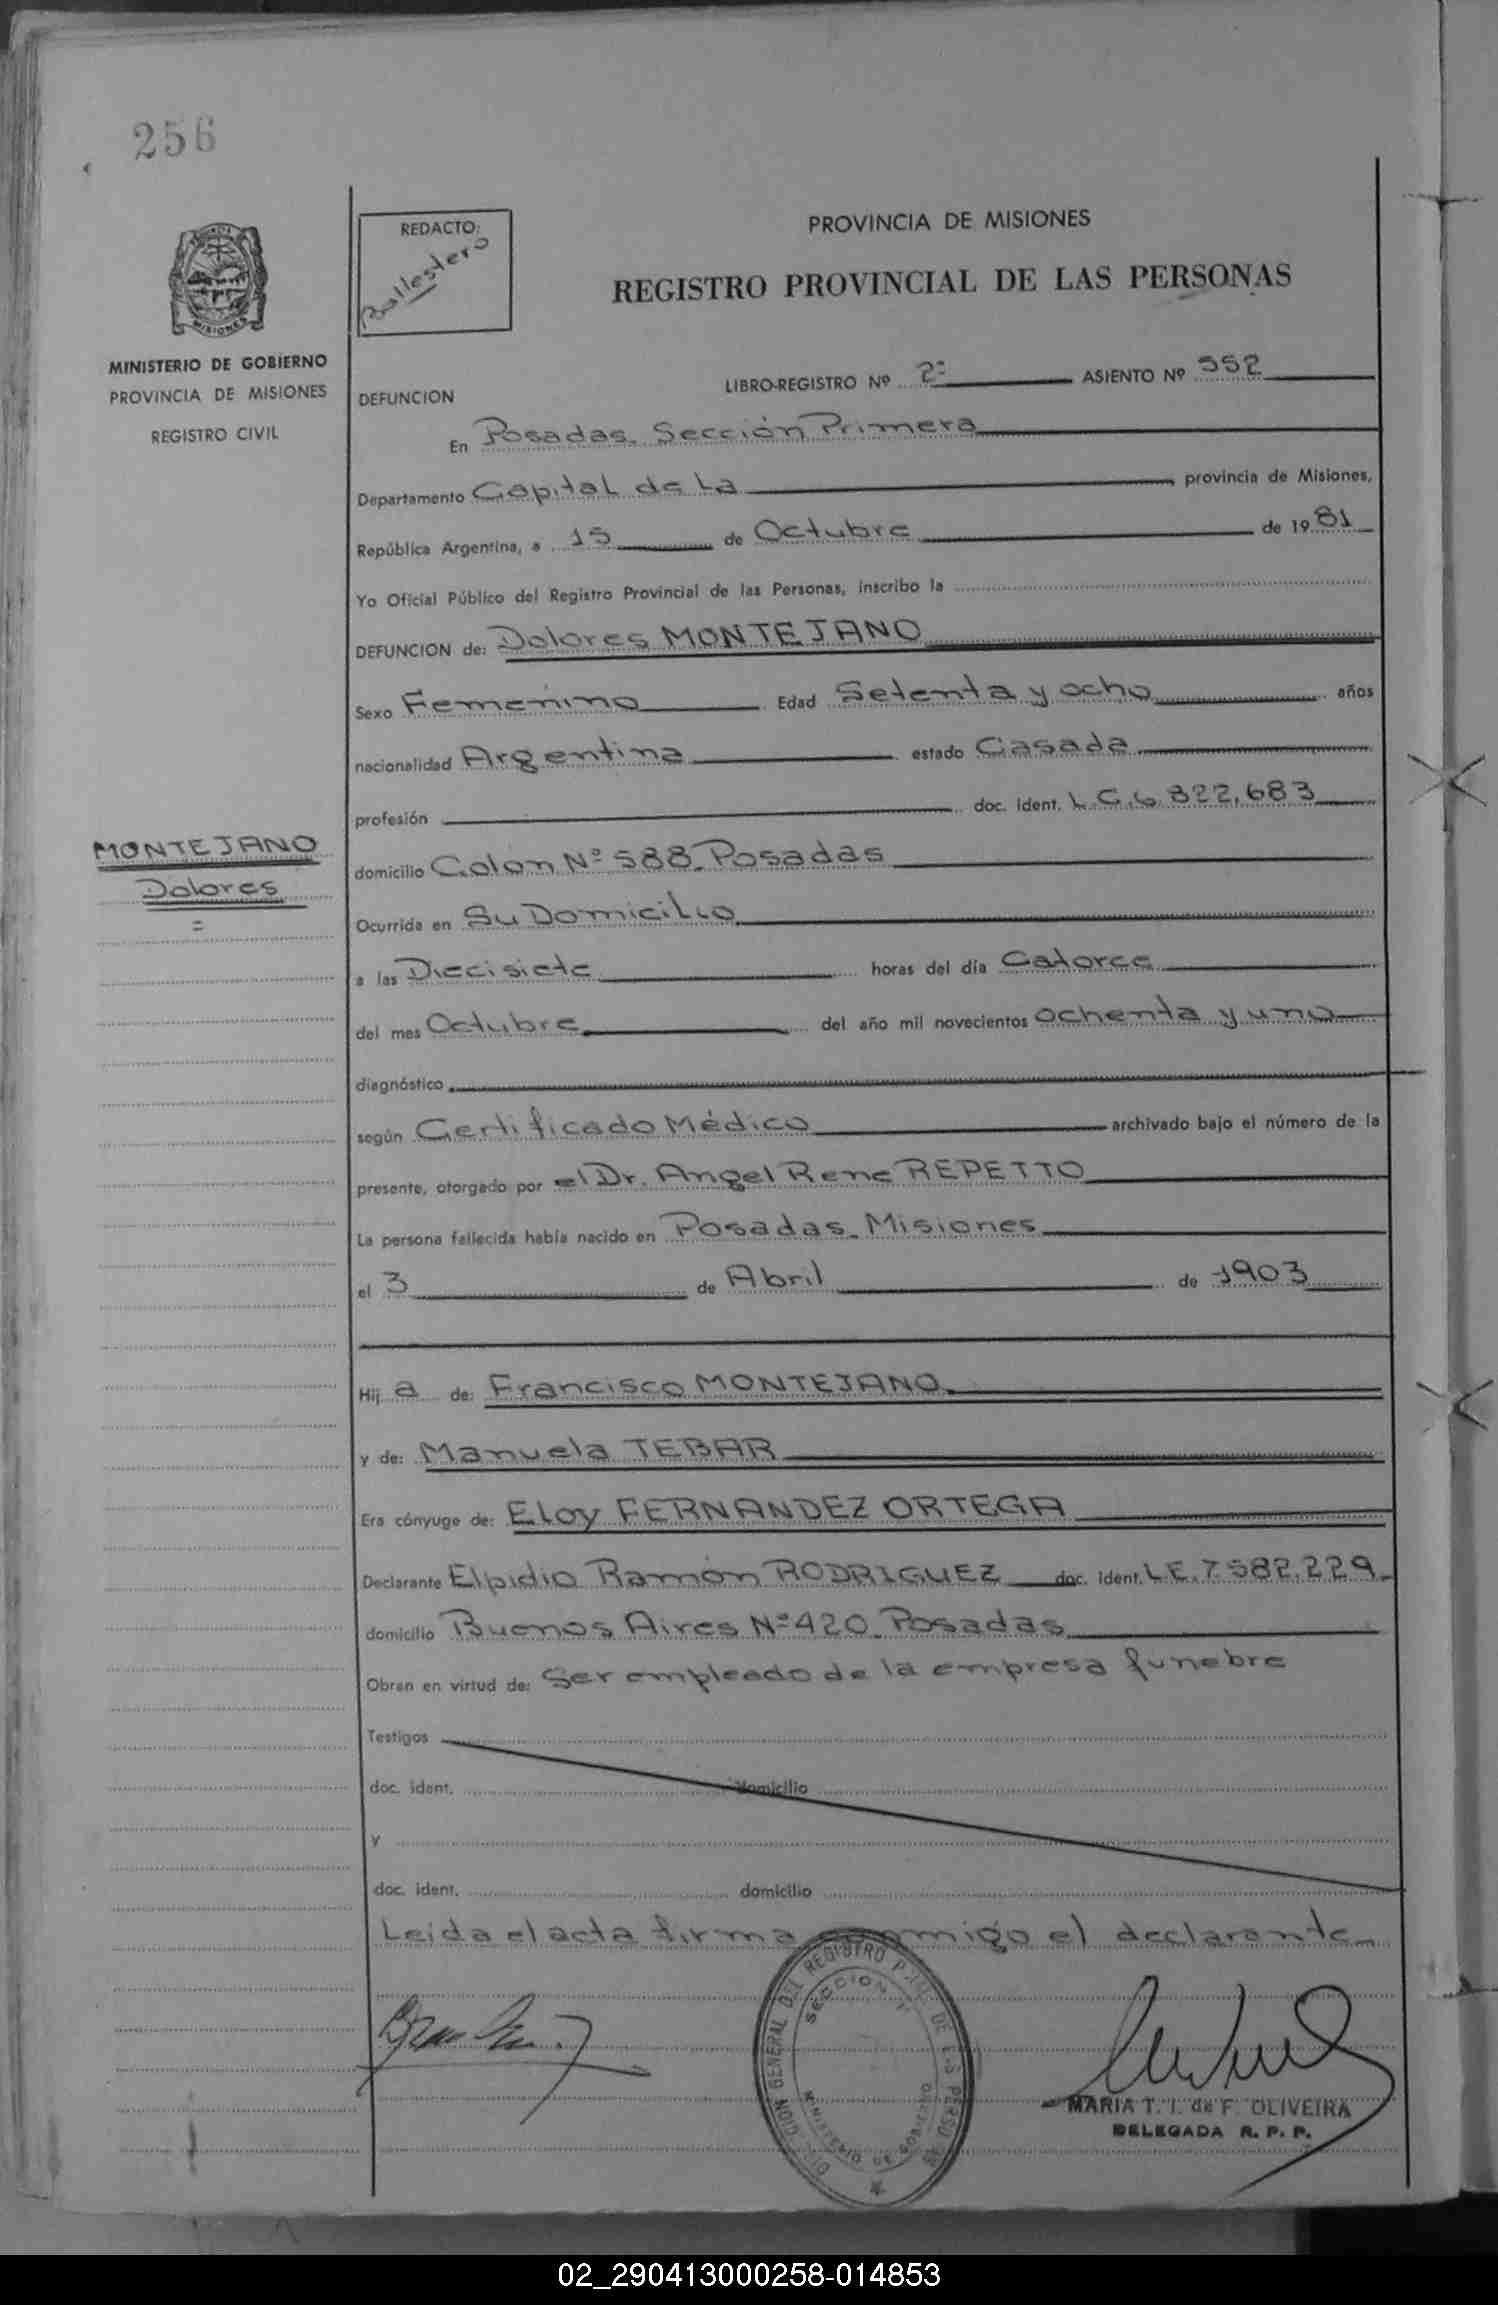 256
REDACTO:
Ballestero
PROVINCIA DE MISIONES
REGISTRO PROVINCIAL DE LAS PERSONAS
MISIONES
MINISTERIO DE GOBIERNO
PROVINCIA DE MISIONES
REGISTRO CIVIL
DEFUNCION
LIBRO-REGISTRO Nº 2º ASIENTO Nº 552
En Posadas. Sección Primera
Departamento Capital de La provincia de Misiones,
República Argentina, a 15 de Octubre de 1981
Yo Oficial Público del Registro Provincial de las Personas, inscribo la
DEFUNCION de: Dolores MONTEJANO
Sexo Femenino Edad Setenta y ocho años
nacionalidad Argentina estado Casada
profesión doc. ident. L.C. 6.822.683
MONTEJANO
Dolores
domicilio Colón Nº 588. Posadas
Ocurrida en Su Domicilio
a las Diecisiete horas del día Catorce
del mes Octubre del año mil novecientos ochenta y uno
diagnóstico
según Certificado Médico archivado bajo el número de la
presente, otorgado por el Dr. Angel Rene REPETTO
La persona fallecida había nacido en Posadas. Misiones
el 3 de Abril de 1903
Hij a de: Francisco MONTEJANO
y de: Manuela TEBAR
Era cónyuge de: Eloy FERNANDEZ ORTEGA
Declarante Elpidio Ramón RODRIGUEZ doc. ident. L.E. 7.582.229
domicilio Buenos Aires Nº 420. Posadas
Obran en virtud de: Ser empleado de la empresa funebre
Testigos
doc. ident. domicilio
y
doc. ident. domicilio
Leida el acta firma conmigo el declarante
SECCION
MARIA T. I. de F. OLIVEIRA
DELEGADA R. P. P.
02_290413000258-014853